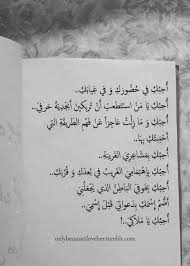 أحبكِ في حضوركِ و في غيابكِ..
أحبكِ يا من استطعتِ أن تربكين أبجدية حرفي..
أحبكِ و ما زلتُ عاجزاً عن فهم الطريقة التي
أحببتكِ بها..
أحبكِ بمشاعري الغريبة..
أحبكِ بإهتمامي الغريب في بعدكِ و قربكِ..
أحبكِ بخوفي الباطن الذي يجعلني
أضم إسمكِ بدعواتي قبل إسمي..
أحبكِ يا ملاكي..!
onlybecauseiloveher.tumblr.com